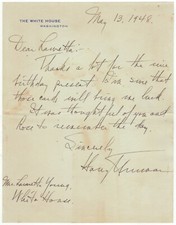 THE WHITE HOUSE
WASHINGTON
May 13, 1948.
Dear Loinette:
Thanks a lot for the nice
birthday present. I'm sure that
those cards will bring me luck.
It was thoughtful of you and
Rose to remember the day.
Sincerely
Harry Truman
Miss Young,
White House